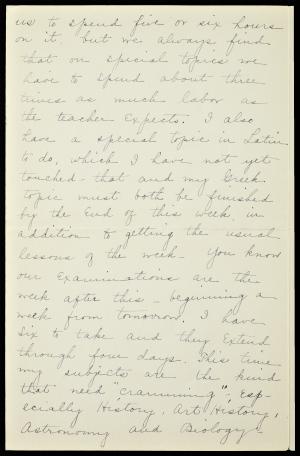 us to spend five or six hours
on it, but we always find
that on special topics we
have to spend about three
times as much labor as
the teacher expects. I also
have a special topic in Latin
to do, which I have not yet
touched - that and my Greek
topic must both be finished
by the end of this week, in
addition to getting the usual
lessons of the week - You know
our examinations are the
week after this - beginning a
week from tomorrow. I have
six to take and they extend
through four days. This time
my subjects are the kind
that need "cramming", esp-
ecially History, Art History,
Astronomy and Biology -